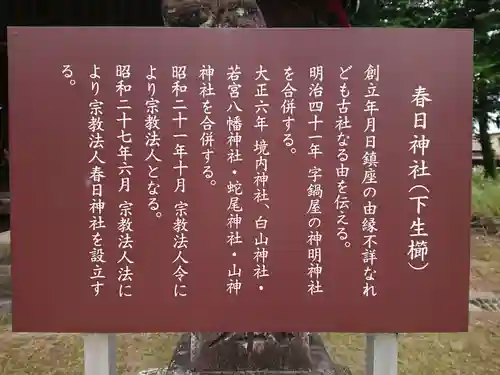 春日神社（下生櫛）
創立年月日鎮座の由緣不詳なれ
ども古社なる由を伝える。
明治四十一年 字鍋屋の神明神社
を合併する。
大正六年 境内神社、白山神社・
若宮八幡神社・蛇尾神社・山神
神社を合併する。
昭和二十一年十月 宗教法人令に
より宗教法人となる。
昭和二十七年六月 宗教法人法に
より宗教法人春日神社を設立す
る。